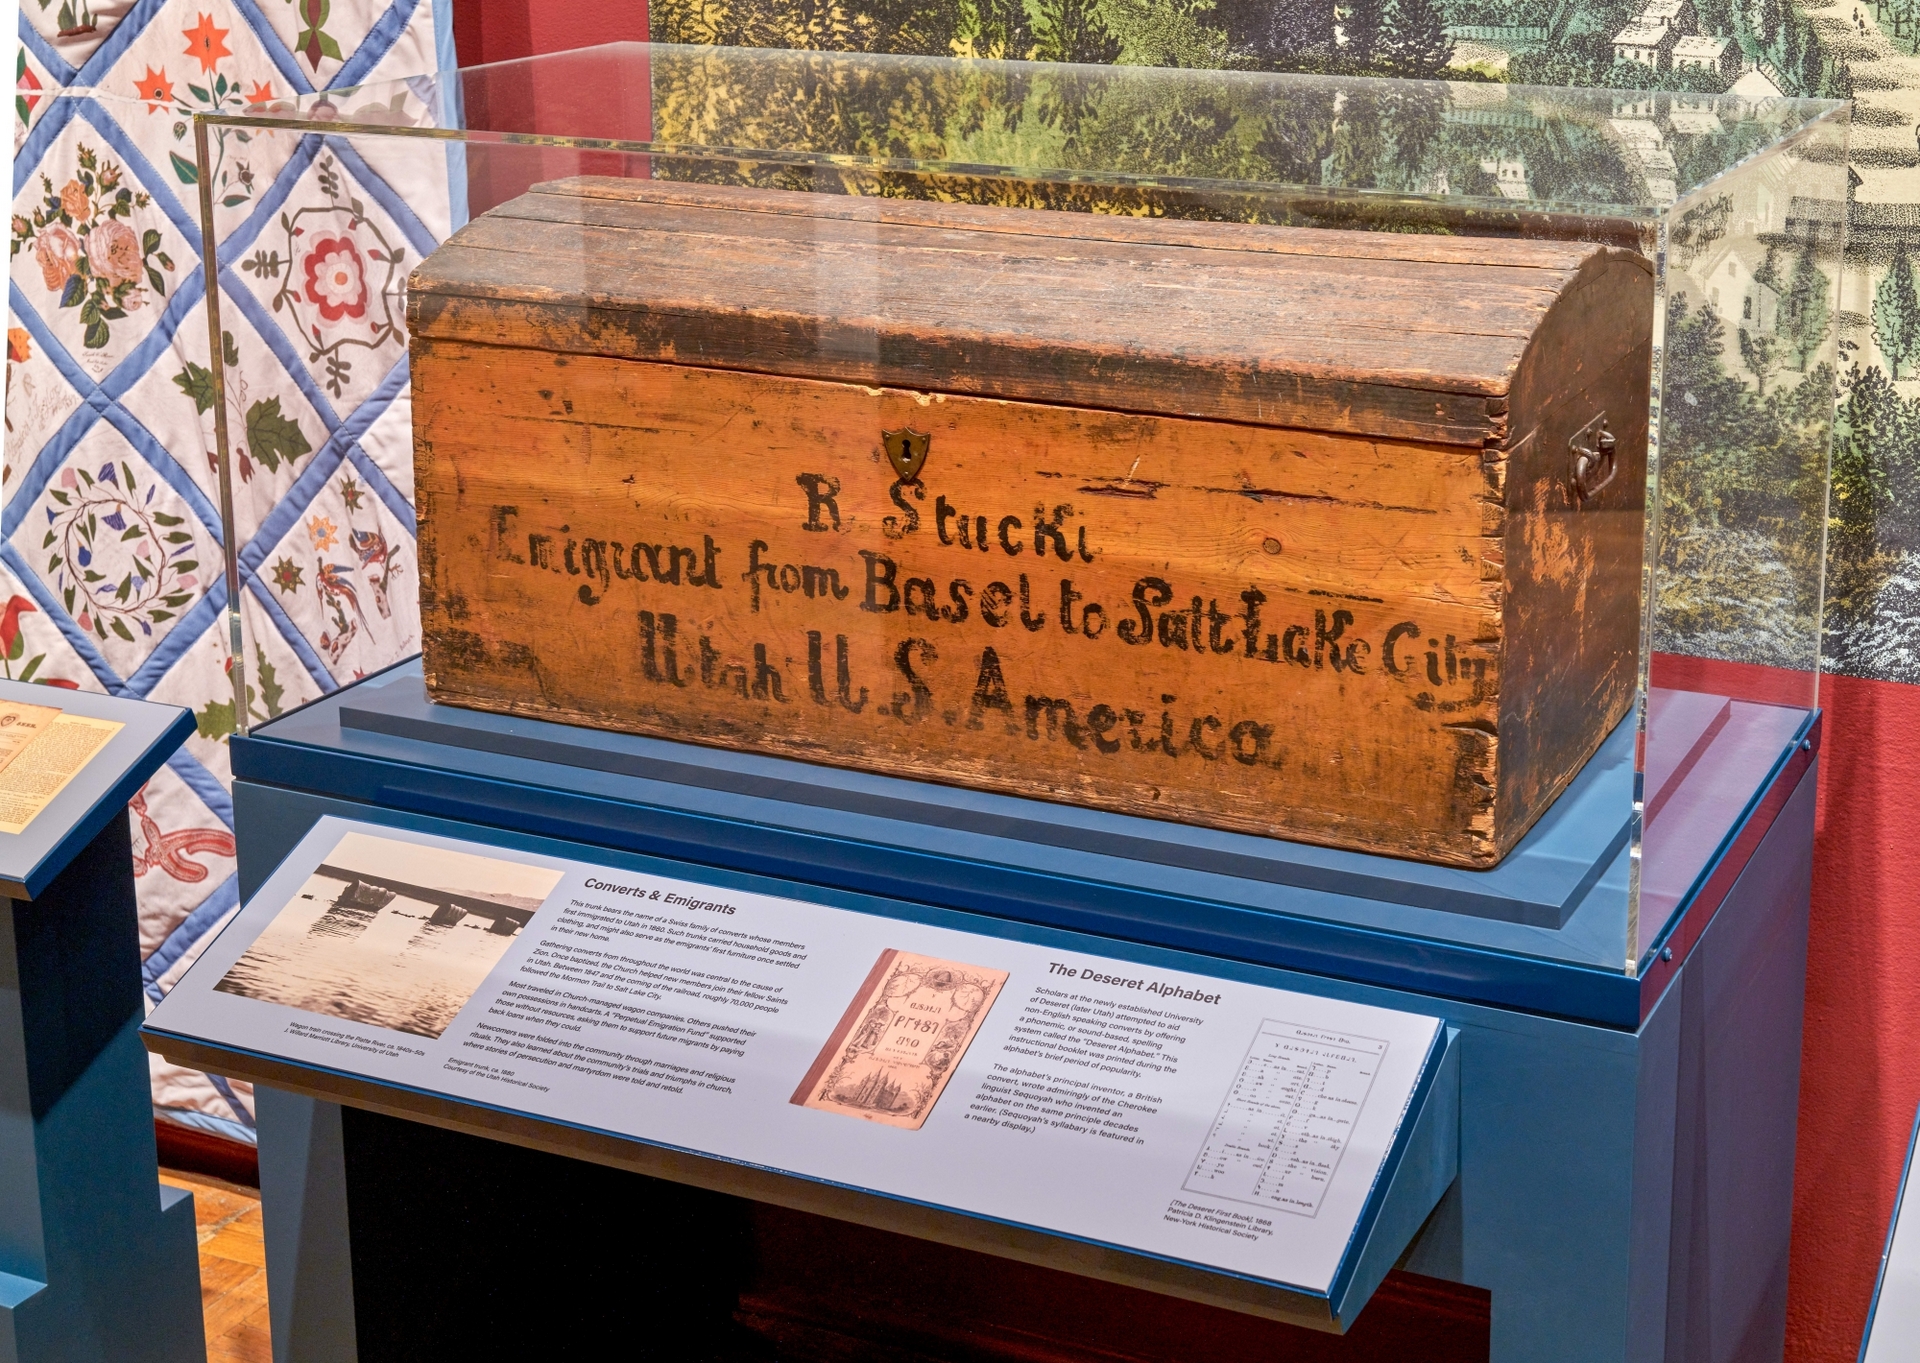 R Stucki
Emigrant from Basel to Salt Lake City
Utah U.S. America
Converts & Emigrants
This trunk bears the name of a Swiss family of converts whose members
first immigrated to Utah in 1860. Such trunks carried household goods and
clothing, and might also serve as the emigrants' first furniture once settled
in their new home.
Gathering converts from throughout the world was central to the cause of
Zion. Once baptized, the Church helped new members join their fellow Saints
in Utah. Between 1847 and the coming of the railroad, roughly 70,000 people
followed the Mormon Trail to Salt Lake City.
Most traveled in Church-managed wagon companies. Others pushed their
own possessions in handcarts. A "Perpetual Emigration Fund" supported
those without resources, asking them to support future migrants by paying
back loans when they could.
Newcomers were folded into the community through marriages and religious
rituals. They also learned about the community's trials and triumphs in church,
where stories of persecution and martyrdom were told and retold.
Emigrant trunk, ca. 1860
Courtesy of the Utah Historical Society
Wagon train crossing the Platte River, ca. 1840s–50s
J. Willard Marriott Library, University of Utah
The Deseret Alphabet
Scholars at the newly established University
of Deseret (later Utah) attempted to aid
non-English speaking converts by offering
a phonemic, or sound-based, spelling
system called the "Deseret Alphabet." This
instructional booklet was printed during the
alphabet's brief period of popularity.
The alphabet's principal inventor, a British
convert, wrote admiringly of the Cherokee
linguist Sequoyah who invented an
alphabet on the same principle decades
earlier. (Sequoyah's syllabary is featured in
a nearby display.)
[The Deseret First Book], 1868
Patricia D. Klingenstein Library,
New-York Historical Society